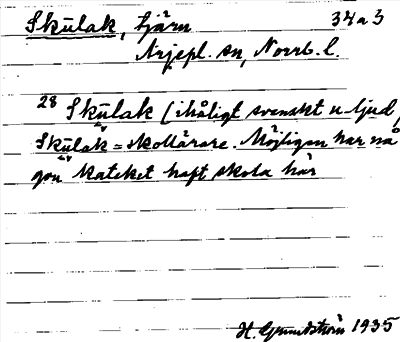 Skūlak, tjärn 34a3
Arjepl. sn, Norrb. l.
28 Skūlak (ihåligt svenskt u-ljud,
Skūlak = skollärare. Möjligen har nå
gon kateket haft skola här
H. Grundström 1935